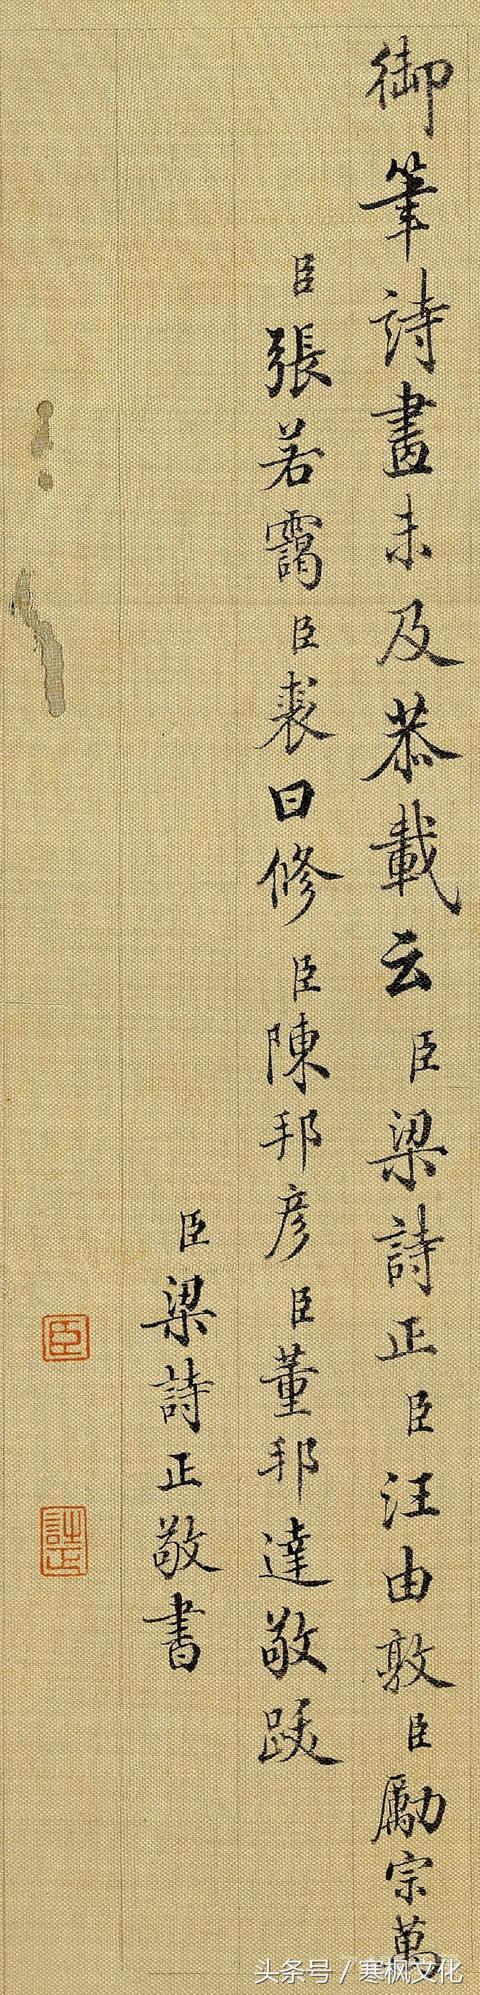 御筆詩畫未及恭載云臣梁詩正臣汪由敦臣勵宗萬
臣張若靄臣裘曰修臣陳邦彦臣董邦達敬跋
臣梁詩正敬書
臣
詩正
头条号／寒枫文化